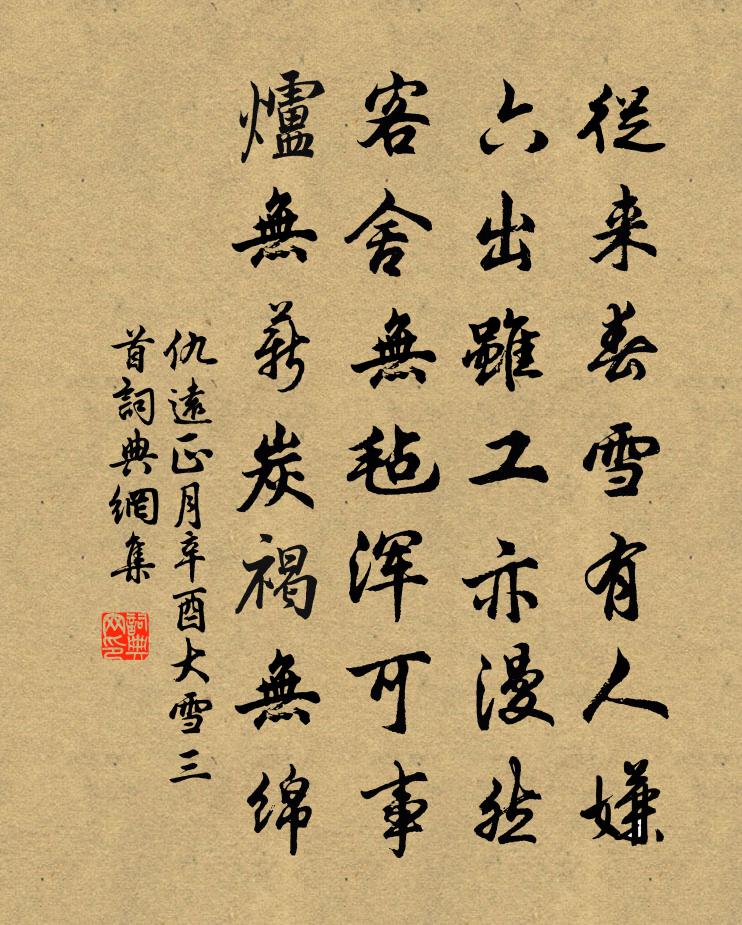 從来春雪有人嫌
六出雖工亦漫然
客舍無毡浑可事
爐無薪炭褐無绵
仇遠正月辛酉大雪三
首詞典網集
詞典網印